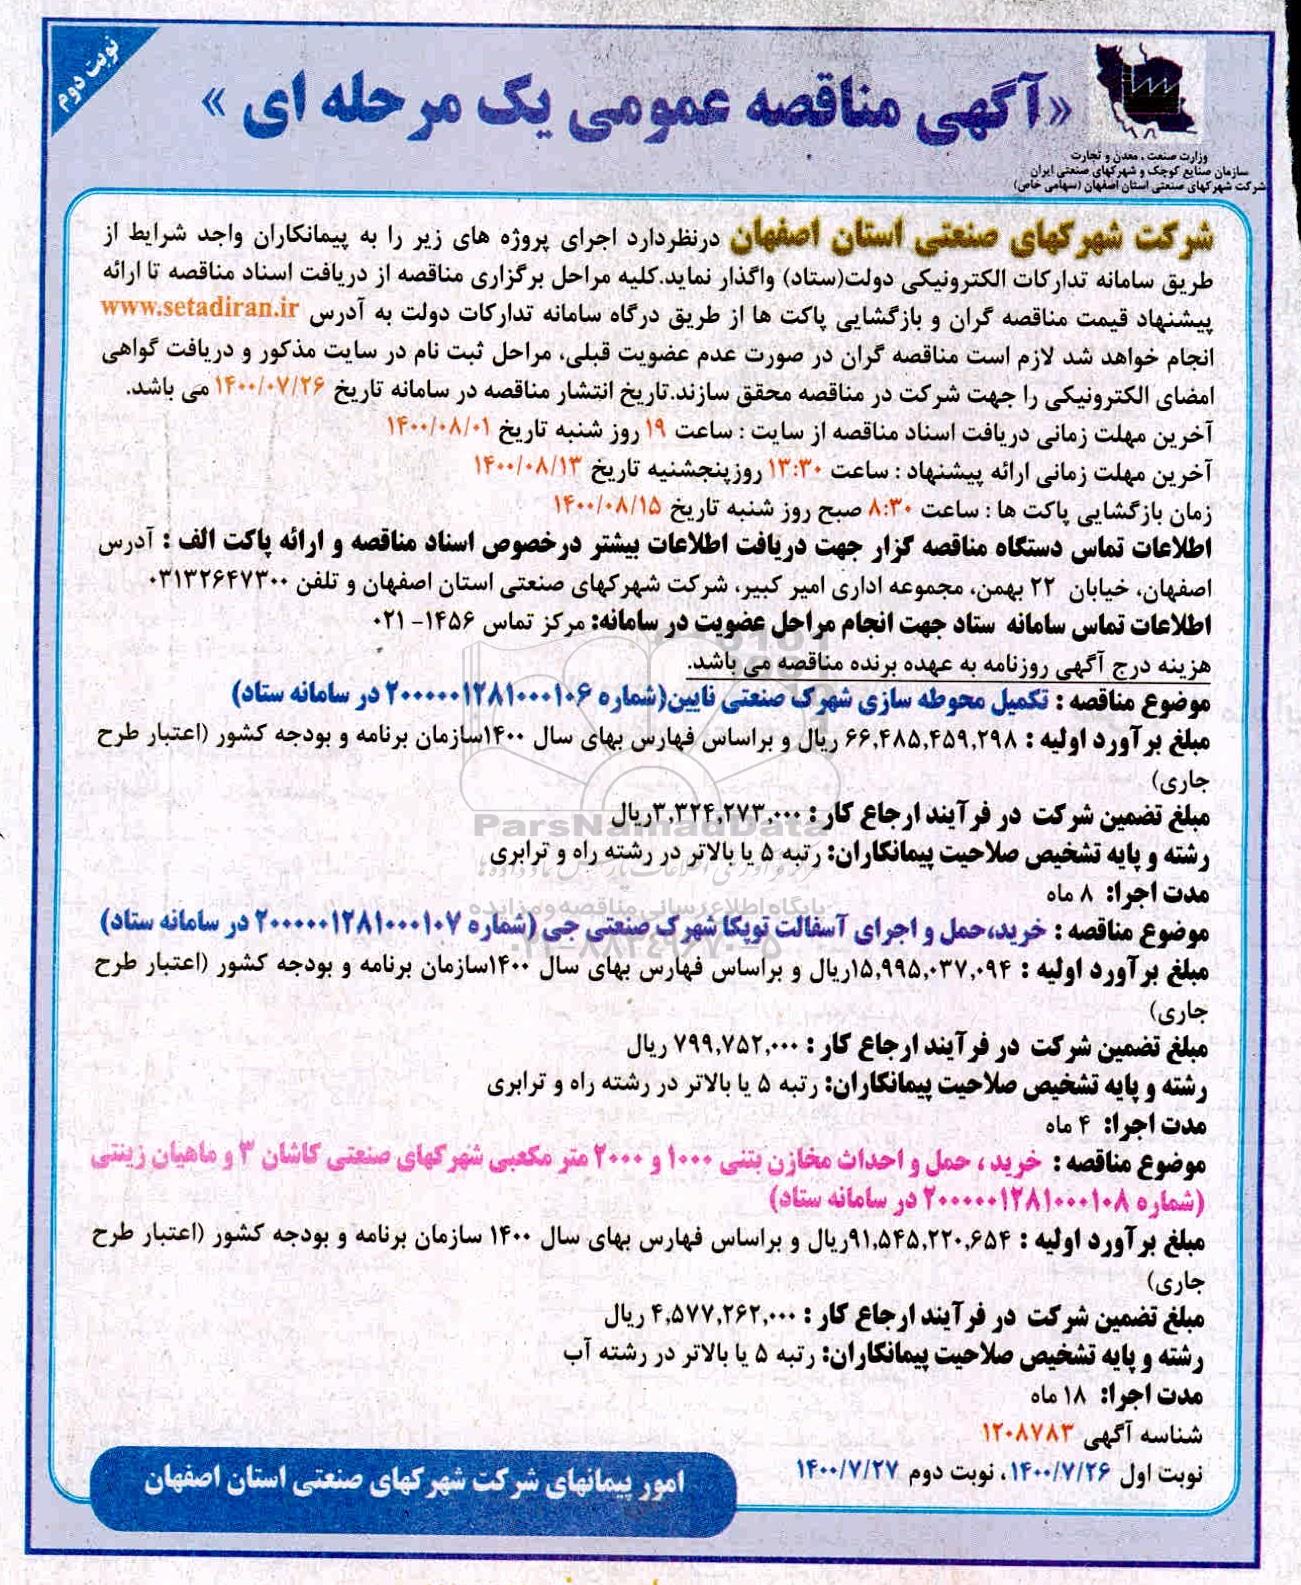 نوبت دوم
«آگهی مناقصه عمومی یک مرحله ای»
وزارت صنعت، معدن و تجارت
سازمان صنایع کوچک و شهرکهای صنعتی ایران
شرکت شهرکهای صنعتی استان اصفهان (سهامی خاص)
شرکت شهرکهای صنعتی استان اصفهان درنظردارد اجرای پروژه های زیر را به پیمانکاران واجد شرایط از
طریق سامانه تدارکات الکترونیکی دولت(ستاد) واگذار نماید.کلیه مراحل برگزاری مناقصه از دریافت اسناد مناقصه تا ارائه
پیشنهاد قیمت مناقصه گران و بازگشایی پاکت ها از طریق درگاه سامانه تدارکات دولت به آدرس www.setadiran.ir
انجام خواهد شد لازم است مناقصه گران در صورت عدم عضویت قبلی، مراحل ثبت نام در سایت مذکور و دریافت گواهی
امضای الکترونیکی را جهت شرکت در مناقصه محقق سازند.تاریخ انتشار مناقصه در سامانه تاریخ ۱۴۰۰/۰۷/۲۶ می باشد.
آخرین مهلت زمانی دریافت اسناد مناقصه از سایت : ساعت ۱۹ روز شنبه تاریخ ۱۴۰۰/۰۸/۰۱
آخرین مهلت زمانی ارائه پیشنهاد : ساعت ۱۳:۳۰ روزپنجشنبه تاریخ ۱۴۰۰/۰۸/۱۳
زمان بازگشایی پاکت ها : ساعت ۸:۳۰ صبح روز شنبه تاریخ ۱۴۰۰/۰۸/۱۵
اطلاعات تماس دستگاه مناقصه گزار جهت دریافت اطلاعات بیشتر درخصوص اسناد مناقصه و ارائه پاکت الف : آدرس
اصفهان، خیابان ۲۲ بهمن، مجموعه اداری امیر کبیر، شرکت شهرکهای صنعتی استان اصفهان و تلفن ۰۳۱۳۲۶۴۷۳۰۰
اطلاعات تماس سامانه ستاد جهت انجام مراحل عضویت در سامانه: مرکز تماس ۱۴۵۶- ۰۲۱
هزینه درج آگهی روزنامه به عهده برنده مناقصه می باشد.
موضوع مناقصه : تکمیل محوطه سازی شهرک صنعتی نایین(شماره ۲۰۰۰۰۰۱۲۸۱۰۰۰۱۰۶ در سامانه ستاد)
مبلغ برآورد اولیه : ۶۶,۴۸۵,۴۵۹,۲۹۸ ریال و براساس فهارس بهای سال ۱۴۰۰سازمان برنامه و بودجه کشور (اعتبار طرح
جاری)
مبلغ تضمین شرکت در فرآیند ارجاع کار : ۳,۳۲۴,۲۷۳,۰۰۰ریال
ParsNamadData
رشته و پایه تشخیص صلاحیت پیمانکاران: رتبه ۵ یا بالاتر در رشته راه و ترابری
مدت اجرا: ۸ ماه
پایگاه اطلاع رسانی مناقصه و مزایده
موضوع مناقصه : خرید،حمل و اجرای آسفالت توپکا شهرک صنعتی جی (شماره ۲۰۰۰۰۰۱۲۸۱۰۰۰۱۰۷ در سامانه ستاد)
مبلغ برآورد اولیه : ۱۵,۹۹۵,۰۳۷,۰۹۴ریال و براساس فهارس بهای سال ۱۴۰۰سازمان برنامه و بودجه کشور (اعتبار طرح
جاری)
مبلغ تضمین شرکت در فرآیند ارجاع کار : ۷۹۹,۷۵۲,۰۰۰ ریال
رشته و پایه تشخیص صلاحیت پیمانکاران: رتبه ۵ یا بالاتر در رشته راه و ترابری
مدت اجرا: ۴ ماه
موضوع مناقصه : خرید ، حمل و احداث مخازن بتنی ۱۰۰۰ و ۲۰۰۰ متر مکعبی شهرکهای صنعتی کاشان ۳ و ماهیان زینتی
(شماره ۲۰۰۰۰۰۱۲۸۱۰۰۰۱۰۸ در سامانه ستاد)
مبلغ برآورد اولیه : ۹۱,۵۴۵,۲۲۰,۶۵۴ریال و براساس فهارس بهای سال ۱۴۰۰ سازمان برنامه و بودجه کشور (اعتبار طرح
جاری)
مبلغ تضمین شرکت در فرآیند ارجاع کار : ۴,۵۷۷,۲۶۲,۰۰۰ ریال
رشته و پایه تشخیص صلاحیت پیمانکاران: رتبه ۵ یا بالاتر در رشته آب
مدت اجرا: ۱۸ ماه
شناسه آگهی ۱۲۰۸۷۸۳
نوبت اول ۱۴۰۰/۷/۲۶، نوبت دوم ۱۴۰۰/۷/۲۷
امور پیمانهای شرکت شهرکهای صنعتی استان اصفهان